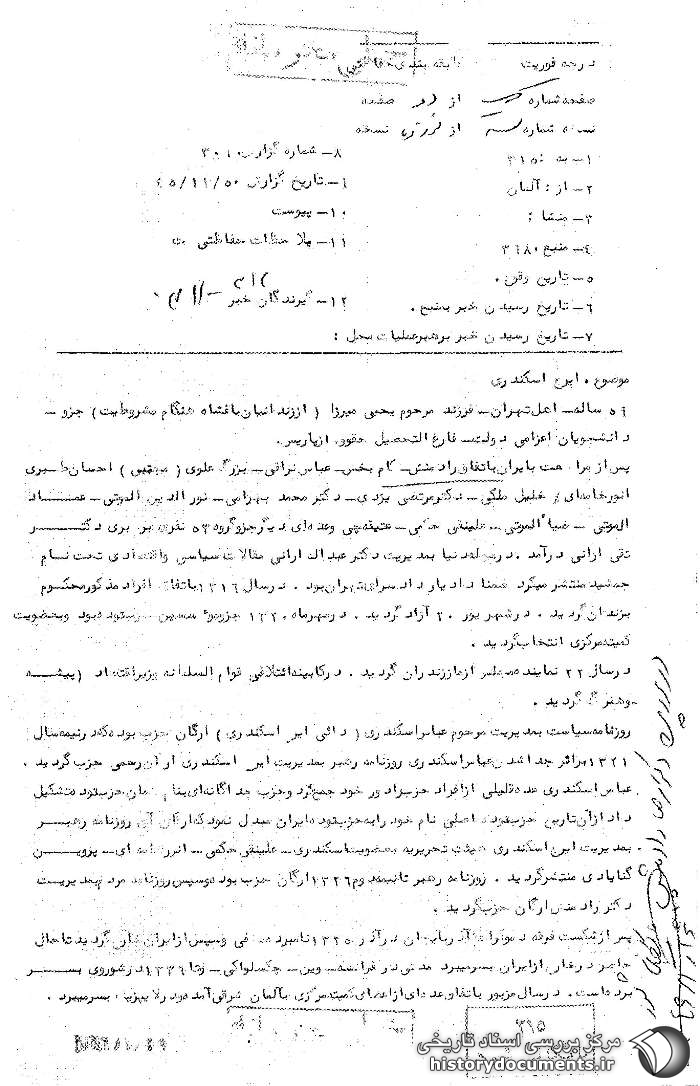 درجه فوریت
صفحه شماره از دو صفحه
نسخه شماره از نسخه
۱- به : ۳۱۵
۲- از : آلمان
۳- منشا :
۴- منبع ۳۶۸۰
۵- تاریخ وقوع .
۶- تاریخ رسیدن خبر بمنبع .
۷- تاریخ رسیدن خبر برهبر عملیات محل :
۸- شماره گزارش ۳۰۱۰
۹- تاریخ گزارش ۴۵/۱۱/۵۰
۱۰- پیوست
۱۱- ملاحظات حفاظتی
۱۲- گیرندگان خبر
موضوع . ایرج اسکندری
۵۹ ساله- اهل تهران- فرزند مرحوم یحیی میرزا ( از زندانیان باغشاه هنگام مشروطیت ) جزو -
دانشجویان اعزامی دولت- فارغ التحصیل حقوق ازپاریس.
پس از مراجعت بایران باتفاق رادمنش- کام بخش- عباس نراقی- بزرگ علوی ( مجتبی ) احسان طبری
انور خامه ای خلیل ملکی- دکتر مرتضی یزدی- دکتر محمد بهرامی- نورالدین الموتی- عماد
الموتی- ضیأ الموتی- علینقی حکمی- عتیقه چی وعده ای دیگر جزو گروه ۵۳ نفری برهبری دکتر
تقی ارانی درآمد . درمجله دنیا بمدیریت دکتر ارانی مقالات سیاسی واقتصادی تحت نام
جمشید منتشر میکرد ضمنا دادیار دادسرای تهران بود . درسال ۱۳۱۶ باتفاق افراد مذکور محکوم
بزندان گردید . درشهریور ۲۰ آزاد گردید . درمهرماه ۱۳۲۰ جزو مؤسسین حزب توده بود وبعضویت
کمیته مرکزی انتخاب گردید .
درسال ۲۲ نماینده مجلس ازمازندران گردید . درکابینه ائتلافی قوام السلطنه وزیر اقتصاد ( پیشه
وهنر ) گردید .
روزنامه سیاست بمدیریت مرحوم عباس اسکندری ( دائی ایرج اسکندری ) ارگان حزب بود که درنیمه سال
۱۳۲۱ براثر جدا شدن عباس اسکندری روزنامه رهبر بمدیریت ایرج اسکندری ارگان رسمی حزب گردید .
عباس اسکندری عده قلیلی ازافراد حزب را دور خود جمع کرد وحزب جداگانه ای بنام همان حزب توده تشکیل
داد ازآن تاریخ حزب توده اصلی نام خود رابه حزب توده ایران مبدل نمود که ارگان آن روزنامه رهبر
بمدیریت ایرج اسکندری هیئت تحریریه بعضویت اسکندری- علینقی حکمی- انور خامه ای- پروین
گنابادی منتشر گردید . روزنامه رهبر تا نیمه دوم ۱۳۲۶ ارگان حزب بود وسپس روزنامه مردم بمدیریت
دکتر رادمنش ارگان حزب گردید .
پس ازشکست فرقه دموکرات آذربایجان درآذر ۱۳۲۵ نامبرده مخفی وسپس ازایران خارج گردید تا حال
حاضر درخارج ازایران بسر میبرد مدتی در فرانسه- وین- چکسلواکی- وتا ۱۳۳۶ درشوروی بسر
برده است . درسال مزبور باتفاق عده ای ازاعضای کمیته مرکزی بآلمان شرقی آمده ودر لایپزیک بسر میبرد .
۳۱۵
مرکز بررسی اسناد تاریخی
historydocuments.ir